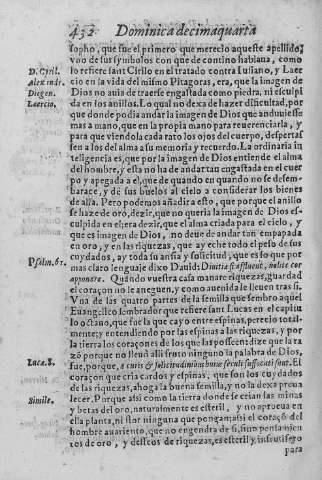 432 Dominica decimaquarta
sopho, que fue el primero que merecio aqueste apellido,
vno de sus symbolos con que de contino hablaua, como
D. Cyril. lo refiere sant Cirillo en el tratado contra Iuliano, y Laer
Alex in ār. cio en la vida del mismo Pitagoras, era, que la imagen de
Diogen. Dios no auia de traerse engastada como piedra, ni esculpi
Laercio. da en los anillos. Lo qual no dexa de hazer dificultad, por
que donde podia andar la imagen de Dios que anduuiesse
mas a mano, que en la propia mano para reuerenciarla, y
para que viendola cada rato los ojos del cuerpo, despertas
sen a los del alma a su memoria y recuerdo. La ordinaria in
teligencia es, que por la imagen de Dios entiende el alma
del hombre, y esta no ha de andar tan engastada en el cuer
po y apegada a el, que de quando en quando no se desem-
barace, y dé sus buelos al cielo a considerar los bienes
de alla. Pero podemos añadir a esto, que porque el anillo
se haze de oro, dezir, que no queria la imagen de Dios es
culpida en el, era dezir, que el alma criada para el cielo, y
que es imagen de Dios, no deue de andar tan empapada
en oro, y en las riquezas, que ay eche todo el peso de sus
cuydados, ay toda su ansia y solicitud, que es lo que por
Psalm. 61. mas claro lenguaje dixo Dauid: Diuitiæ si affluent, nolite cor
apponere. Quando vuestra casa manare riquezas, guardad
el coraçon no le aneguen, y como auenida le lleuen tras si.
Vna de las quatro partes de la semilla que sembro aquel
Euangelico sembrador que refiere sant Lucas en el capitu
lo octauo, que fue la que cayo entre espinas, perecio total-
mente; y entendiendo por las espinas a las riquezas, y por
la tierra los coraçones de los que las posseen: dize que la ra
zō porque no lleuò alli fruto ninguno la palabra de Dios,
Luca. 8. fue, porque, a curis & solicitudinibus huius sæculi suffocati sunt. El
coraçon que cria cardos y espinas, que son los cuydados
de las riquezas, ahoga la buena semilla, y no la dexa preua
Simile. lecer. Porque assi como la tierra donde se crian las minas
y betas del oro, naturalmente es esteril, y no aprouecha en
ella planta, ni flor ninguna que pongan; assi el coraçō del
hombre auariento, que no engendra de si, sino pensamien
tos de oro, y desseos de riquezas, es esteril y infrutifero
para